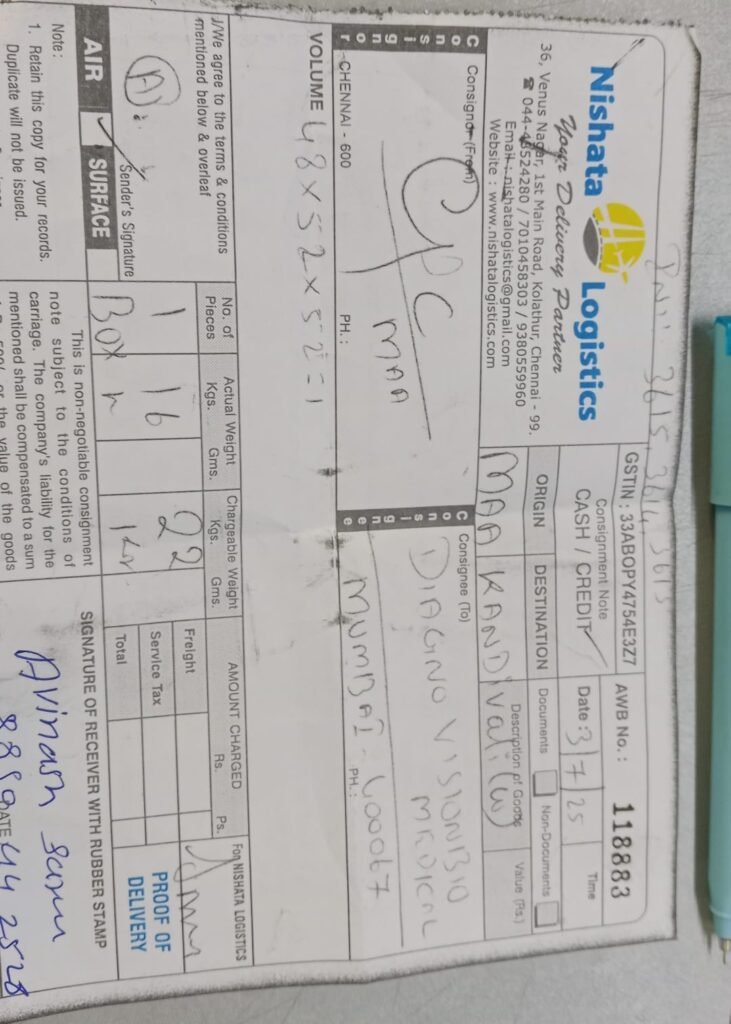 INV: 3615, 3614, 3613
Nishata Logistics
Your Delivery Partner
36, Venus Nagar, 1st Main Road, Kolathur, Chennai - 99.
☎ 044-48524280 / 7010458303 / 9380559960
Email : nishatalogistics@gmail.com
Website : www.nishatalogistics.com
GSTIN : 33ABOPY4754E3Z7
AWB No. : 118883
Consignment Note
CASH / CREDIT
Date : 3/7/25
Time
ORIGIN
DESTINATION
Documents
Non-Documents
MAA
KANDivali(w)
Description of Goods
Value (Rs.)
Consignor
Consignor (From)
CPC
MAA
CHENNAI - 600
PH. :
Consignee
Consignee (To)
DIAGNO VISION BIO
MEDICAL
MUMBAI - 400067
PH. :
VOLUME 48 x 52 x 52 = 1
I/We agree to the terms & conditions
mentioned below & overleaf
Sender's Signature
AIR
SURFACE
No. of Pieces
Actual Weight
Kgs. Gms.
Chargeable Weight
Kgs. Gms.
AMOUNT CHARGED
Rs. Ps.
1
16
22
Box
Freight
Service Tax
Total
For NISHATA LOGISTICS
PROOF OF
DELIVERY
Note :
1. Retain this copy for your records.
Duplicate will not be issued.
This is non-negotiable consignment
note subject to the conditions of
carriage. The company's liability for the
mentioned shall be compensated to a sum
the value of the goods
SIGNATURE OF RECEIVER WITH RUBBER STAMP
Avinash
DATE